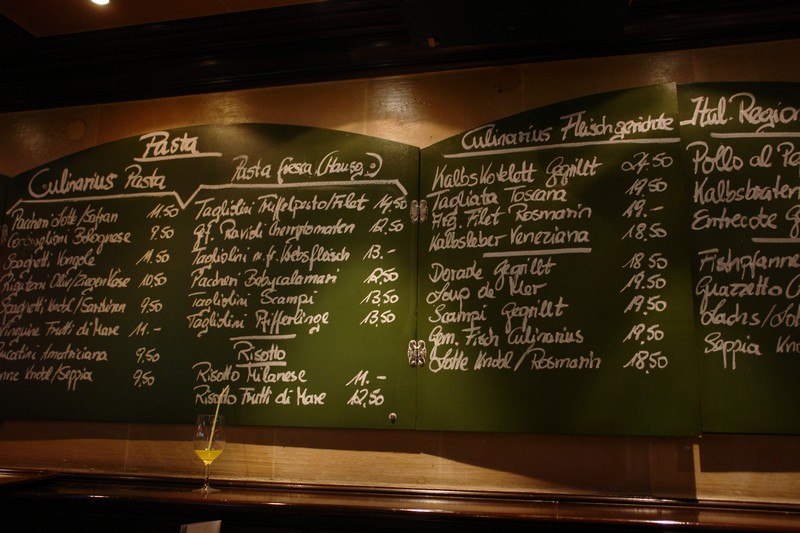 Pasta
Culinarius Pasta
Pacheri Lotte/Safran 11.50
Bolognese 9.50
Spaghetti Vongole 11.50
Rigatoni Olive/Ziegenkäse 10.50
Spaghetti Knobl/Sardinen 9.50
Linguine Frutti di Mare 11.-
Bucatini Amatriciana 9.50
Penne Knobl/Seppia 9.50
Pasta fresca (Hausg.)
Tagliolini Trüffelpesto/Filet 14,50
gf. Ravioli Cherrytomaten 12,50
Tagliolini m. fr. Krebsfleisch 13.-
Pacheri Babycalamari 12,50
Tagliolini Scampi 13,50
Tagliolini Pfifferlinge 13,50
Risotto
Risotto Milanese 11.-
Risotto Frutti di Mare 12,50
Culinarius Fleischgerichte
Kalbskotelett Gegrillt 27,50
Tagliata Toscana 19,50
Arg. Filet Rosmarin 19.-
Kalbsleber Veneziana 18,50
Dorade Gegrillt 18,50
Loup de Mer 19,50
Scampi Gegrillt 19,50
Gem. Fisch Culinarius 19,50
Lotte Knobl/Rosmarin 18,50
Ital. Region
Pollo al Pe
Kalbsbraten
Entrecote G
Fischpfanne
Guazzetto
Lachs/
Seppia Kn